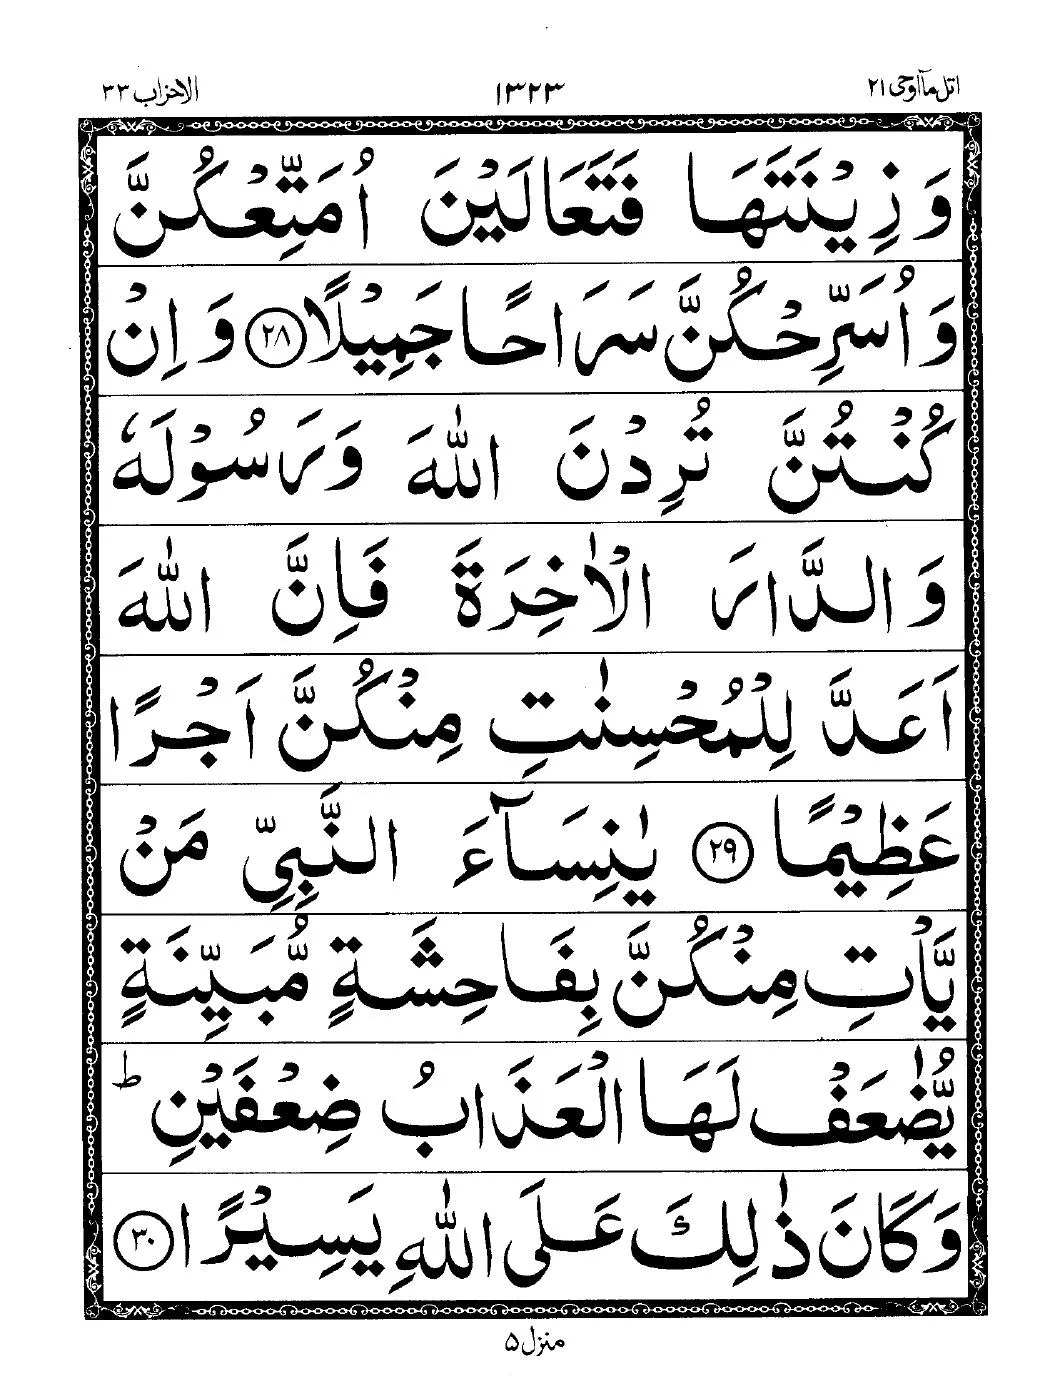 اتل مآاوحی ۲۱
۱۳۲۳
الاحزاب ۳۳
وَ زِيْنَتَهَا فَتَعَالَيْنَ اُمَتِّعْكُنَّ
وَ اُسَرِّحْكُنَّ سَرَاحًا جَمِيْلًا ۲۸ وَ اِنْ
كُنْتُنَّ تُرِدْنَ اللّٰهَ وَ رَسُوْلَهٗ
وَ الدَّارَ الْاٰخِرَةَ فَاِنَّ اللّٰهَ
اَعَدَّ لِلْمُحْسِنٰتِ مِنْكُنَّ اَجْرًا
عَظِيْمًا ۲۹ يٰنِسَآءَ النَّبِيِّ مَنْ
يَّاْتِ مِنْكُنَّ بِفَاحِشَةٍ مُّبَيِّنَةٍ
يُّضٰعَفْ لَهَا الْعَذَابُ ضِعْفَيْنِ ؕ
وَ كَانَ ذٰلِكَ عَلَى اللّٰهِ يَسِيْرًا ۳۰
منزل ۵